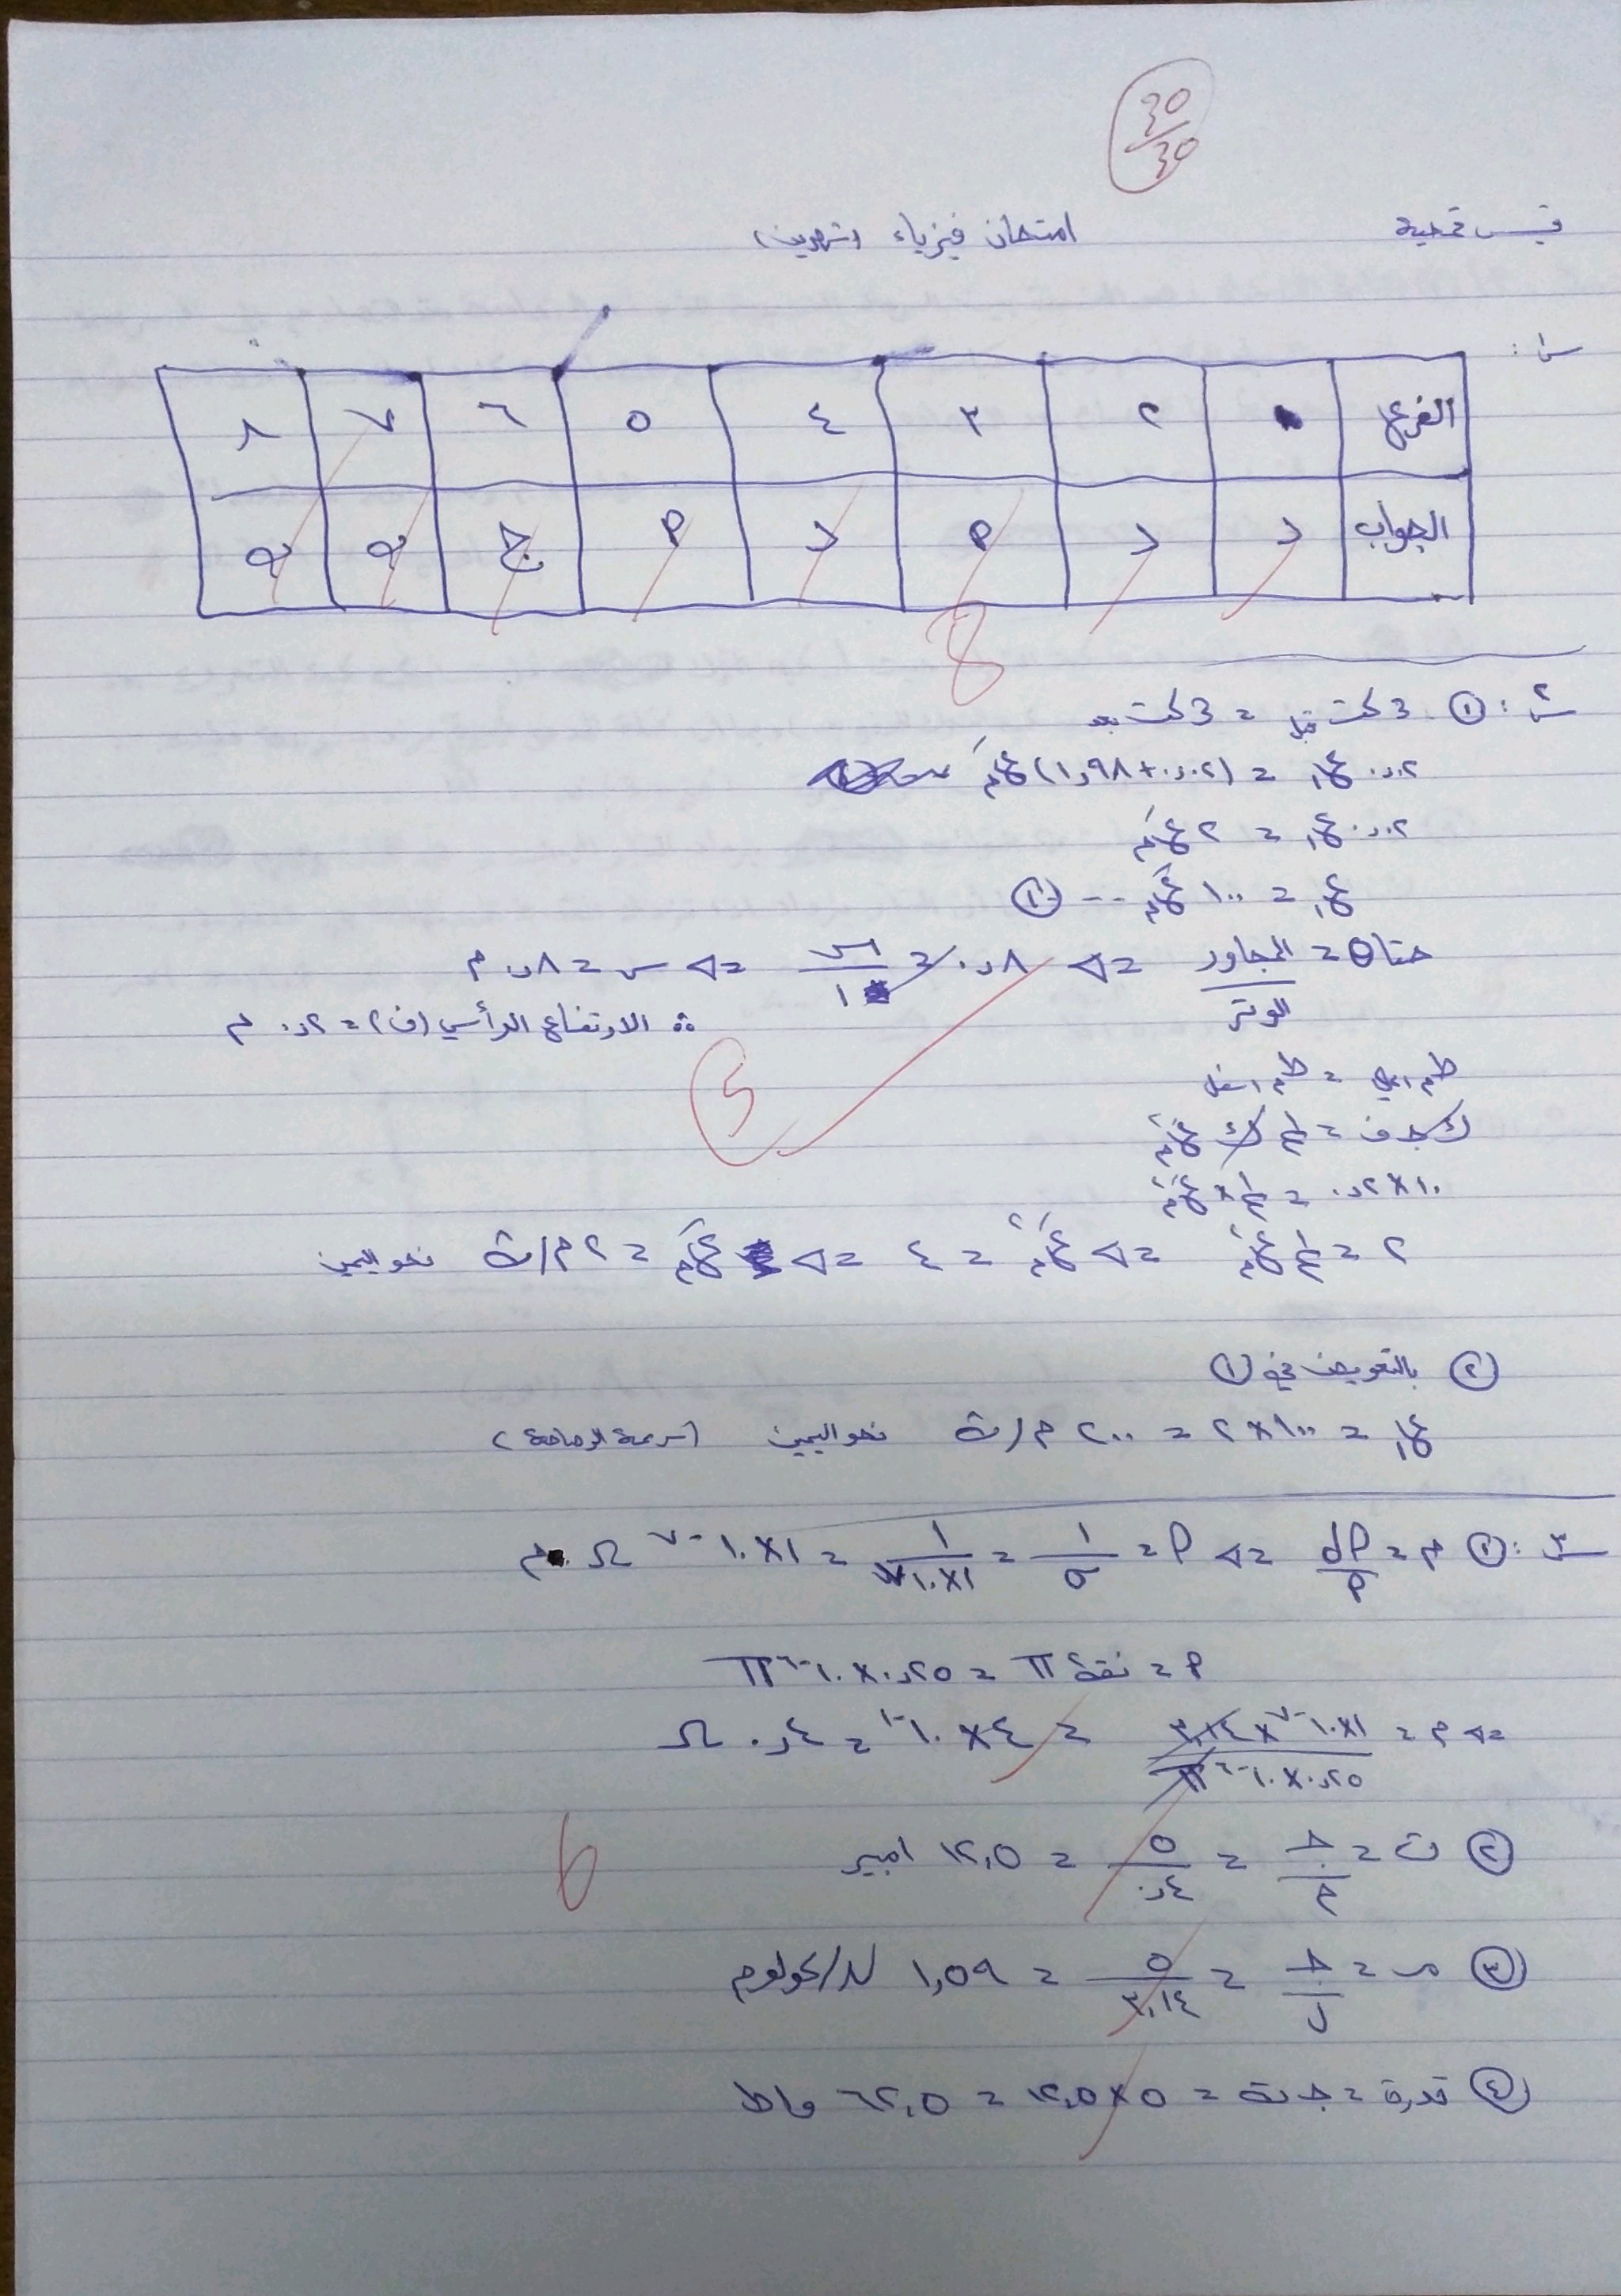 30/30
قيس قمحية امتحان فيزياء (شهرين)
س١:
الفرع ١ ٢ ٣ ٤ ٥ ٦ ٧ ٨
الجواب د د م د م ج ب ب
8
س٢: ① خت قبل = خت بعد
٠,٠٢ ع١ = (٠,٠٢ + ١,٩٨) ع́م
٠,٠٢ ع١ = ٢ ع́م
ع١ = ١٠٠ ع́م -- ①
جتا θ = المجاور/الوتر => ٠,٨ = س/١ => س = ٠,٨ م
∴ الارتفاع الرأسي (ف) = ٠,٢ م
5
طم اعلى = طم اسفل
ك جـ ف = ½ ك ع́م٢
١٠ × ٠,٢ = ½ × ع́م٢
٢ = ½ ع́م٢ => ع́م٢ = ٤ => ع́م = ٢ م/ث نحو اليمين
② بالتعويض في ①
ع١ = ١٠٠ × ٢ = ٢٠٠ م/ث نحو اليمين (سرعة الرصاصة)
س٣: ① م = ρل/أ => ρ = ١/σ = ١/١×١٠٧ = ١×١٠-٧ Ω.م
أ = نق٢ π = ٠,٢٥ × ١٠-٦ π
=> م = ١×١٠-٧ × ٣,١٤ / ٠,٢٥ × ١٠-٦ π = ٤ × ١٠-١ = ٠,٤ Ω
6
② ت = جـ/م = ٥/٠,٤ = ١٢,٥ امبير
③ مـ = جـ/ل = ٥/٣,١٤ = ١,٥٩ /كولوم
④ قدرة = جـ ت = ٥ × ١٢,٥ = ٦٢,٥ واط